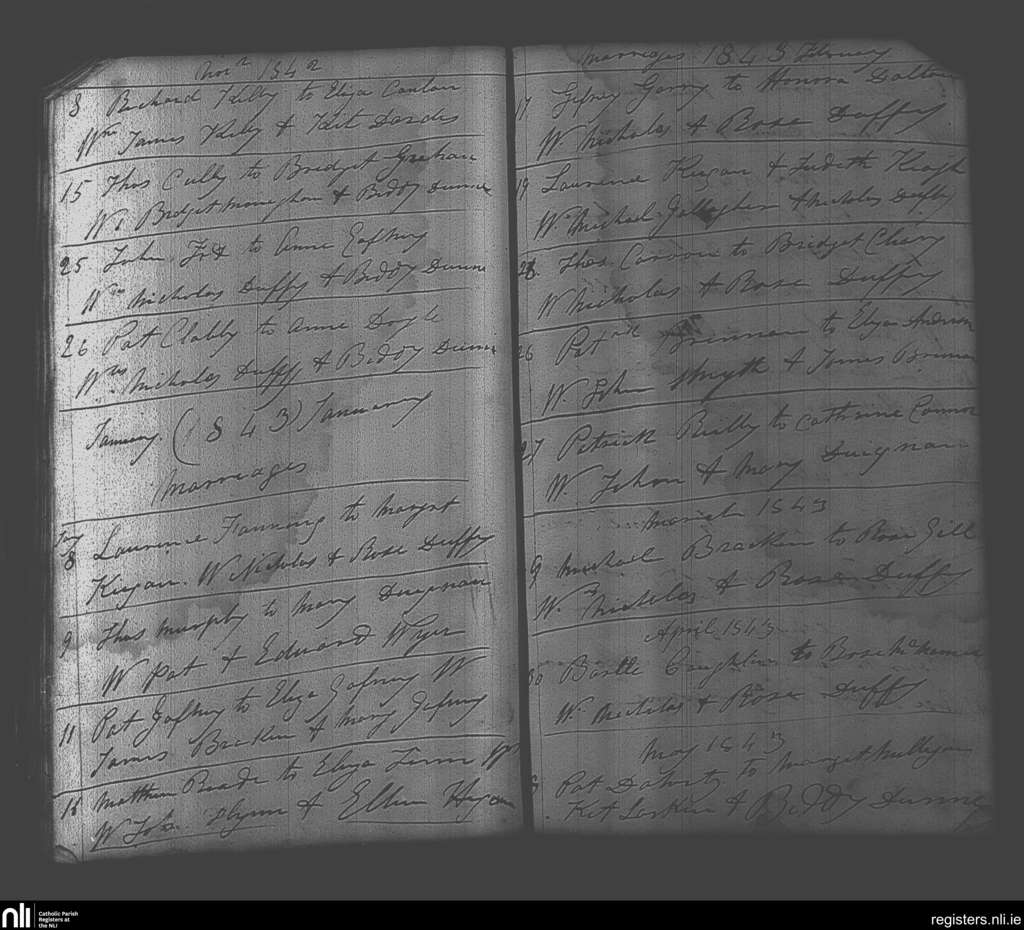 Novr 1842
8 Richard Kelly to Eliza Conlon
Wm James Kelly & Kit Dardis
15 Thos Cully to Bridget Graham
Ws Bridget Monighan & Biddy Dunne
25 John to Anne Gafney
Ws Nicholas Duffy & Biddy Dunne
26 Pat Clabby to Anne Doyle
Wss Nicholas Duffy & Biddy Dunne
January. (1843) January
Marriages
Jay
8 Laurence Fanning to Margt
Kegan. W Nicholas & Rose Duffy
9 Thos Murphy to Mary Duignan
W Pat & Edward Wyer
11 Pat Gafney to Eliza Gafney W
James Bracken & Mary Gafney
16 Matthew to Eliza
W John Flynn & Ellen
Marriages 1843 February
17 Gefrey to Honora Dalton
W. Nicholas & Rose Duffy
19 Laurence Kegan & Judith Keogh
W. Michael Gallagher & Nicholas
Thos. to Bridget
W Nicholas & Rose Duffy
26 Patrick Brennan to Eliza
W. John Smyth & James Brennan
27 Patrick Reilly to Catherine Connor
W. John & Mary Duignan
March 1843
9 Michael Bracken to Rose Gill
W. Nicholas & Rose Duffy
April 1843
30 Bartle Coughlin to Rose
W. Nicholas & Rose Duffy
May 1843
Pat to Margret Mulligan
Kit Larkin & Biddy Dunne
nli
Catholic Parish
Registers at
the NLI
registers.nli.ie